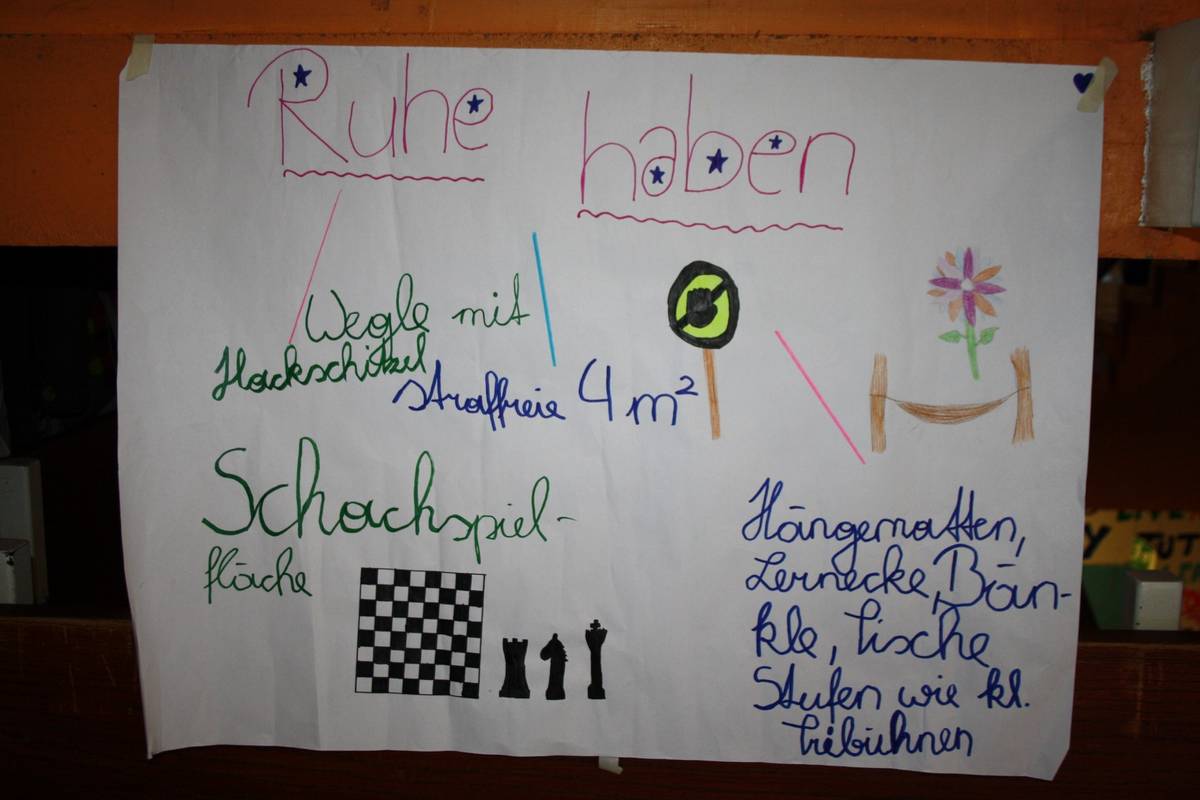 Ruhe haben
Wegle mit
Hackschitzel
straffreie 4 m²
Schachspiel-
fläche
Hängematten,
Lernecke, Bän-
kle, Tische
Stufen wie kl.
Tribühnen
TUT